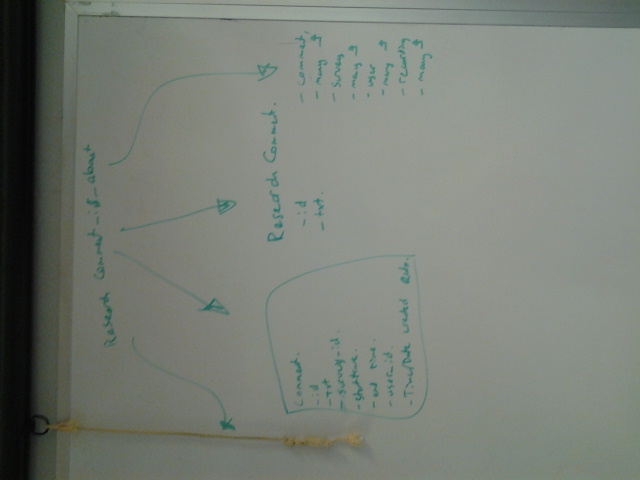 Research Comment_is_about
Comment.
- id
- txt
- survey-id.
- start time.
- end time.
- user_id.
- Time/Date created
Research Comment.
- id
- txt.
- Comment,
- many
- survey
- many
- user
- many
- recording
- many